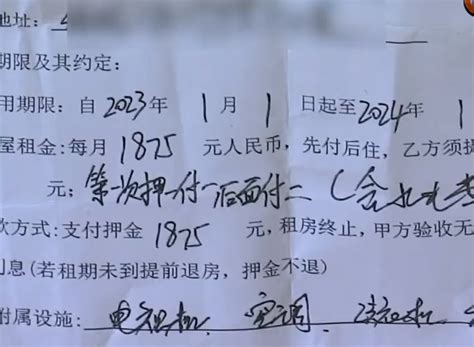 地址:
期限及其约定:
用期限: 自2023年1月1日起至2024年1
屋租金:每月1875元人民币, 先付后住, 乙方须提
元; 第一次押一付一后面付二 (含
款方式:支付押金1875元,租房终止, 甲方验收无
利息(若租期未到提前退房, 押金不退)
附属设施: 电视机. 空调. 洗衣机.